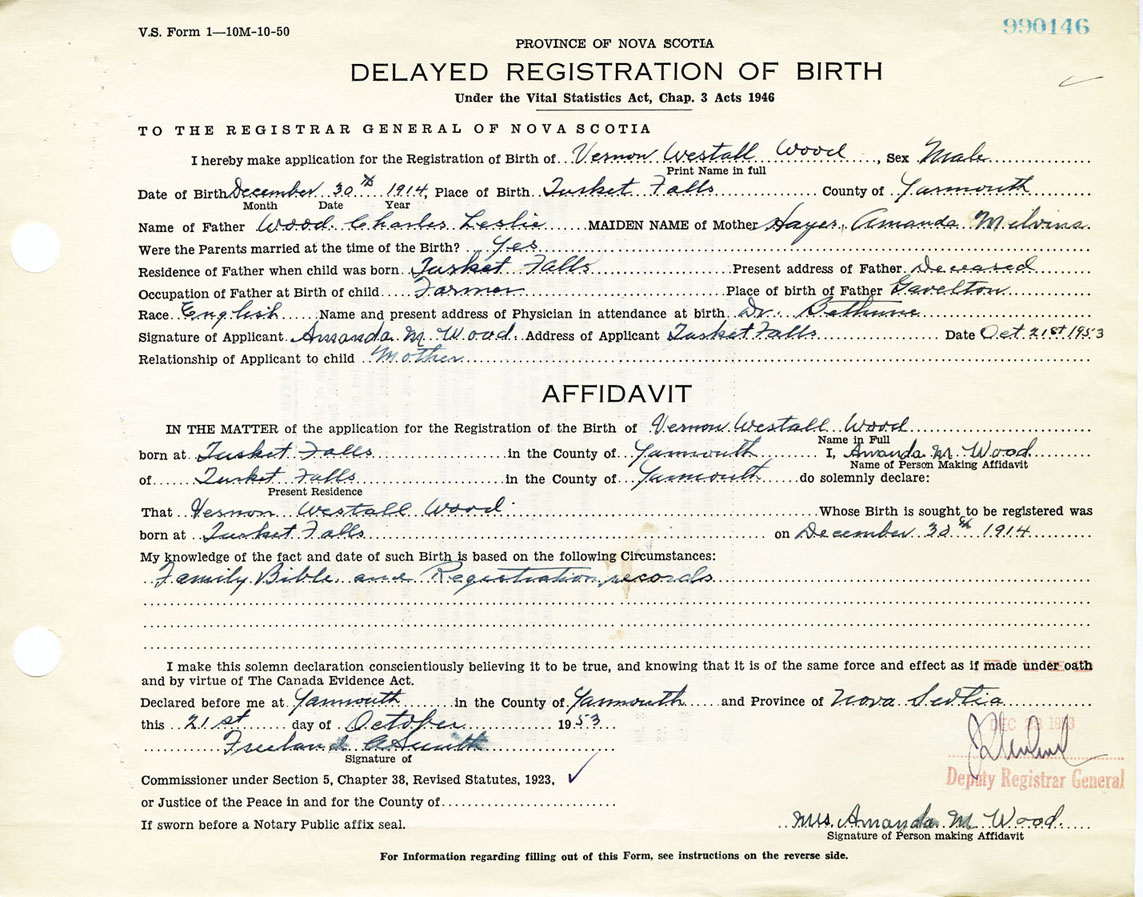 V.S. Form 1—10M-10-50
990146
PROVINCE OF NOVA SCOTIA
DELAYED REGISTRATION OF BIRTH
Under the Vital Statistics Act, Chap. 3 Acts 1946
TO THE REGISTRAR GENERAL OF NOVA SCOTIA
I hereby make application for the Registration of Birth of Vernon Westall Wood, Sex Male
Print Name in full
Date of Birth December 30th 1914, Place of Birth Tusket Falls County of Yarmouth
Month Date Year
Name of Father Wood Charles Leslie MAIDEN NAME of Mother Hayes, Amanda Melvina
Were the Parents married at the time of the Birth? Yes
Residence of Father when child was born Tusket Falls Present address of Father Deceased
Occupation of Father at Birth of child Farmer Place of birth of Father Gavelton
Race English Name and present address of Physician in attendance at birth Dr. Bethune
Signature of Applicant Amanda M Wood Address of Applicant Tusket Falls Date Oct 21st 1953
Relationship of Applicant to child Mother
AFFIDAVIT
IN THE MATTER of the application for the Registration of the Birth of Vernon Westall Wood
Name in Full
born at Tusket Falls in the County of Yarmouth I, Amanda M. Wood
Name of Person Making Affidavit
of Tusket Falls in the County of Yarmouth do solemnly declare:
Present Residence
That Vernon Westall Wood Whose Birth is sought to be registered was
born at Tusket Falls on December 30th 1914
My knowledge of the fact and date of such Birth is based on the following Circumstances:
Family Bible and Registration records
I make this solemn declaration conscientiously believing it to be true, and knowing that it is of the same force and effect as if made under oath
and by virtue of The Canada Evidence Act.
Declared before me at Yarmouth in the County of Yarmouth and Province of Nova Scotia
this 21st day of October 1953
DEC 1953
Freeland A Smith
Signature of
Commissioner under Section 5, Chapter 38, Revised Statutes, 1923,
Deputy Registrar General
or Justice of the Peace in and for the County of
If sworn before a Notary Public affix seal.
Mrs. Amanda M Wood
Signature of Person making Affidavit
For Information regarding filling out of this Form, see instructions on the reverse side.